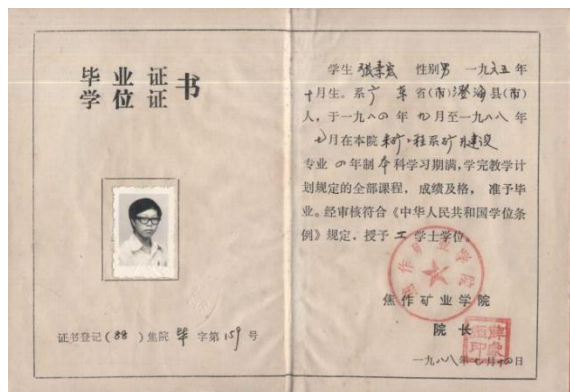 毕业证
学位证书
证书登记(88)焦院 毕 字第159号
学生 张景宏 性别男 一九六五年
十月生。系广东省(市)澄海县(市)
人，于一九八四年九月至一九八八年
七月在本院采矿工程系矿井建设
专业四年制本科学习期满，学完教学计
划规定的全部课程，成绩及格，准予毕
业。经审核符合《中华人民共和国学位条
例》规定，授予工学士学位。
焦作矿业学院
焦作矿业学院
院长
一九八八年七月 日